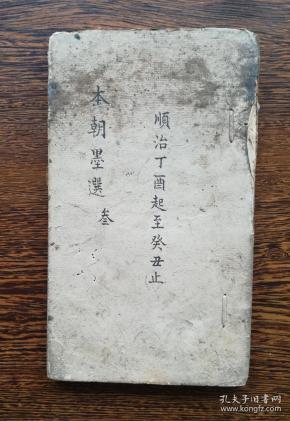 順治丁酉起至癸丑止
本朝墨選 叁
孔夫子旧书网
www.kongfz.com